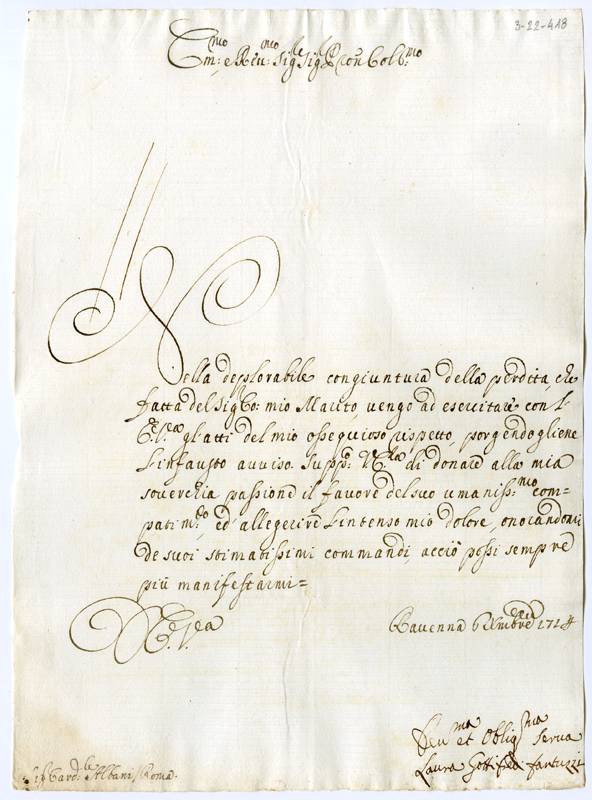 3-22-418
Em:mo e Reu:mo Sig:le Sig: P(ro)n Col:mo
Nella deplorabile congiuntura della perdita, che
fatta del Sig: Co: mio Marito, uengo ad esercitare con l'
E.V:ra gl'atti del mio ossequioso rispetto, porgendogliene
l'infausto auuiso. Supp:co V.E:za di donare alla mia
souerchia passione il fauore del suo umaniss:mo com=
patim:to ed' allegerire l'intenso mio dolore, onorandomi
de suoi stimatissimi commandi, acciò possi sempre
più manifestarmi=
Di V.E:za
Rauenna 6 Xmbre 1714
Deu:ma et Oblig:ma Serua
Laura Gottifredi Fantuzzi
Sig: Card:le Albani Roma.